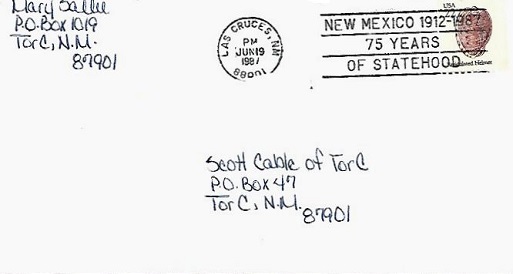 Mary Sallee
P.O. Box 1019
Tor C, N.M.
87901
LAS CRUCES, NM
PM
JUN 19
1987
88001
NEW MEXICO 1912-1987
75 YEARS
OF STATEHOOD
USA
Scott Cable of Tor C
P.O. Box 47
Tor C, N.M.
87901